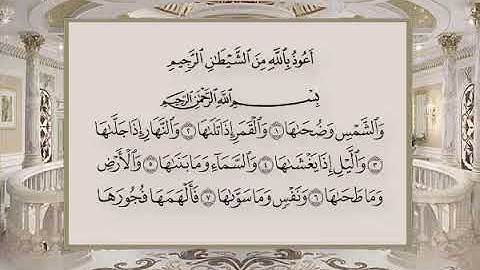 أَعُوذُ بِٱللَّهِ مِنَ ٱلشَّيْطَٰنِ ٱلرَّجِيمِ
بِسْمِ ٱللَّهِ ٱلرَّحْمَٰنِ ٱلرَّحِيمِ
وَٱلشَّمْسِ وَضُحَىٰهَا ١ وَٱلْقَمَرِ إِذَا تَلَىٰهَا ٢ وَٱلنَّهَارِ إِذَا جَلَّىٰهَا
٣ وَٱلَّيْلِ إِذَا يَغْشَىٰهَا ٤ وَٱلسَّمَآءِ وَمَا بَنَىٰهَا ٥ وَٱلْأَرْضِ
وَمَا طَحَىٰهَا ٦ وَنَفْسٍ وَمَا سَوَّىٰهَا ٧ فَأَلْهَمَهَا فُجُورَهَا